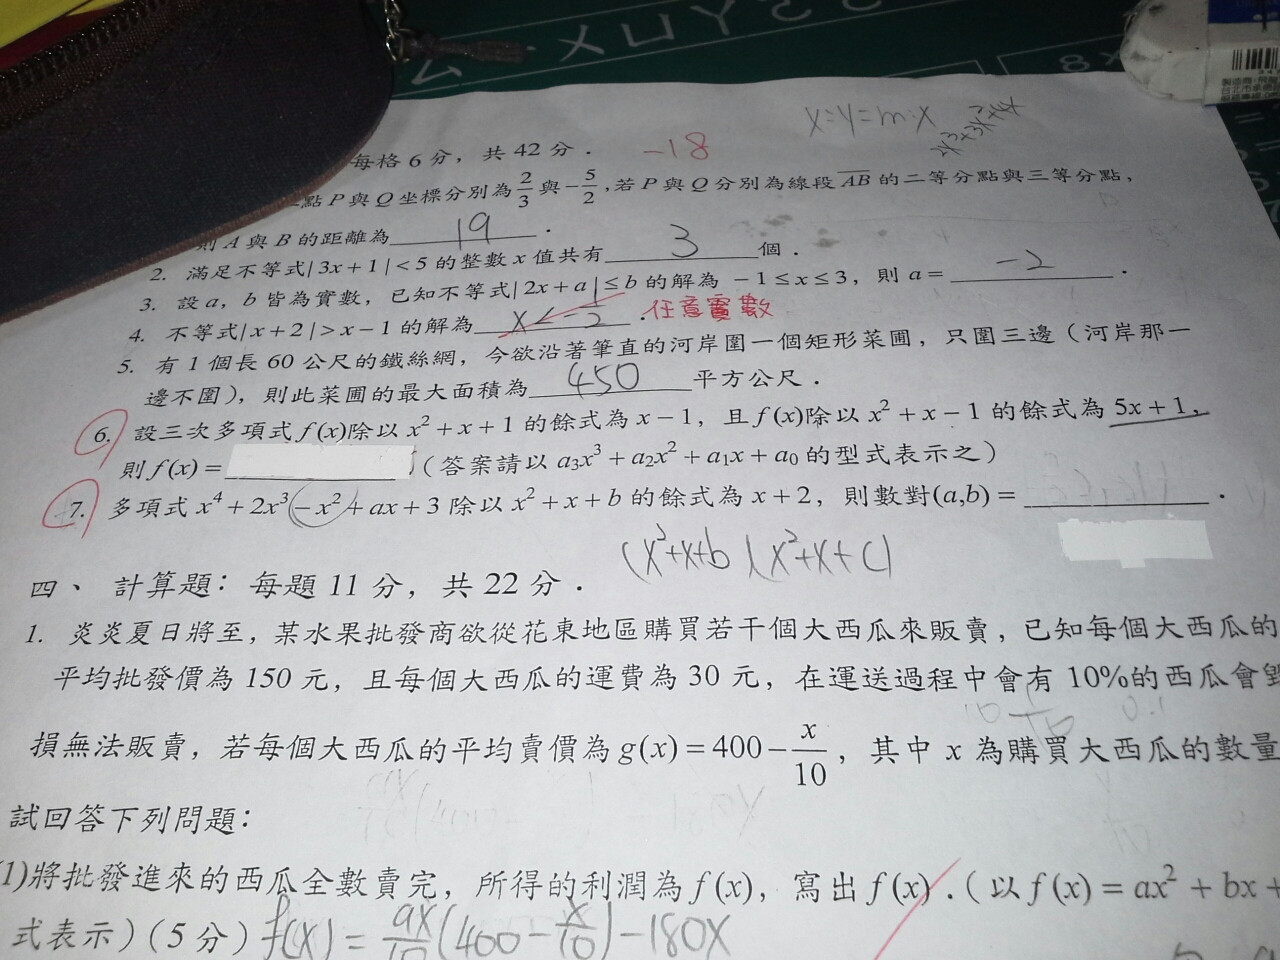 每格 6 分，共 42 分． -18
x:y=m:x
點 P 與 Q 坐標分別為 2/3 與 -5/2，若 P 與 Q 分別為線段 AB 的二等分點與三等分點，
則 A 與 B 的距離為 19．
2. 滿足不等式| 3x + 1 | < 5 的整數 x 值共有 3 個．
3. 設 a，b 皆為實數，已知不等式| 2x + a | ≤ b 的解為 -1 ≤ x ≤ 3，則 a = -2．
4. 不等式| x + 2 | > x - 1 的解為 x<-2．任意實數
5. 有 1 個長 60 公尺的鐵絲網，今欲沿著筆直的河岸圍一個矩形菜圃，只圍三邊（河岸那一
邊不圍），則此菜圃的最大面積為 450 平方公尺．
6. 設三次多項式 f(x)除以 x² + x + 1 的餘式為 x - 1，且 f(x)除以 x² + x - 1 的餘式為 5x + 1，
則 f(x) = （答案請以 a₃x³ + a₂x² + a₁x + a₀ 的型式表示之）
7. 多項式 x⁴ + 2x³ - x² + ax + 3 除以 x² + x + b 的餘式為 x + 2，則數對(a,b) = ．
(x²+x+b)(x²+x+c)
四、計算題：每題 11 分，共 22 分．
1. 炎炎夏日將至，某水果批發商欲從花東地區購買若干個大西瓜來販賣，已知每個大西瓜的
平均批發價為 150 元，且每個大西瓜的運費為 30 元，在運送過程中會有 10%的西瓜會毀
損無法販賣，若每個大西瓜的平均賣價為 g(x) = 400 - x/10，其中 x 為購買大西瓜的數量
試回答下列問題：
1)將批發進來的西瓜全數賣完，所得的利潤為 f(x)，寫出 f(x)．（以 f(x) = ax² + bx +
式表示）（5 分） f(x) = 9x/10(400-x/10)-180x